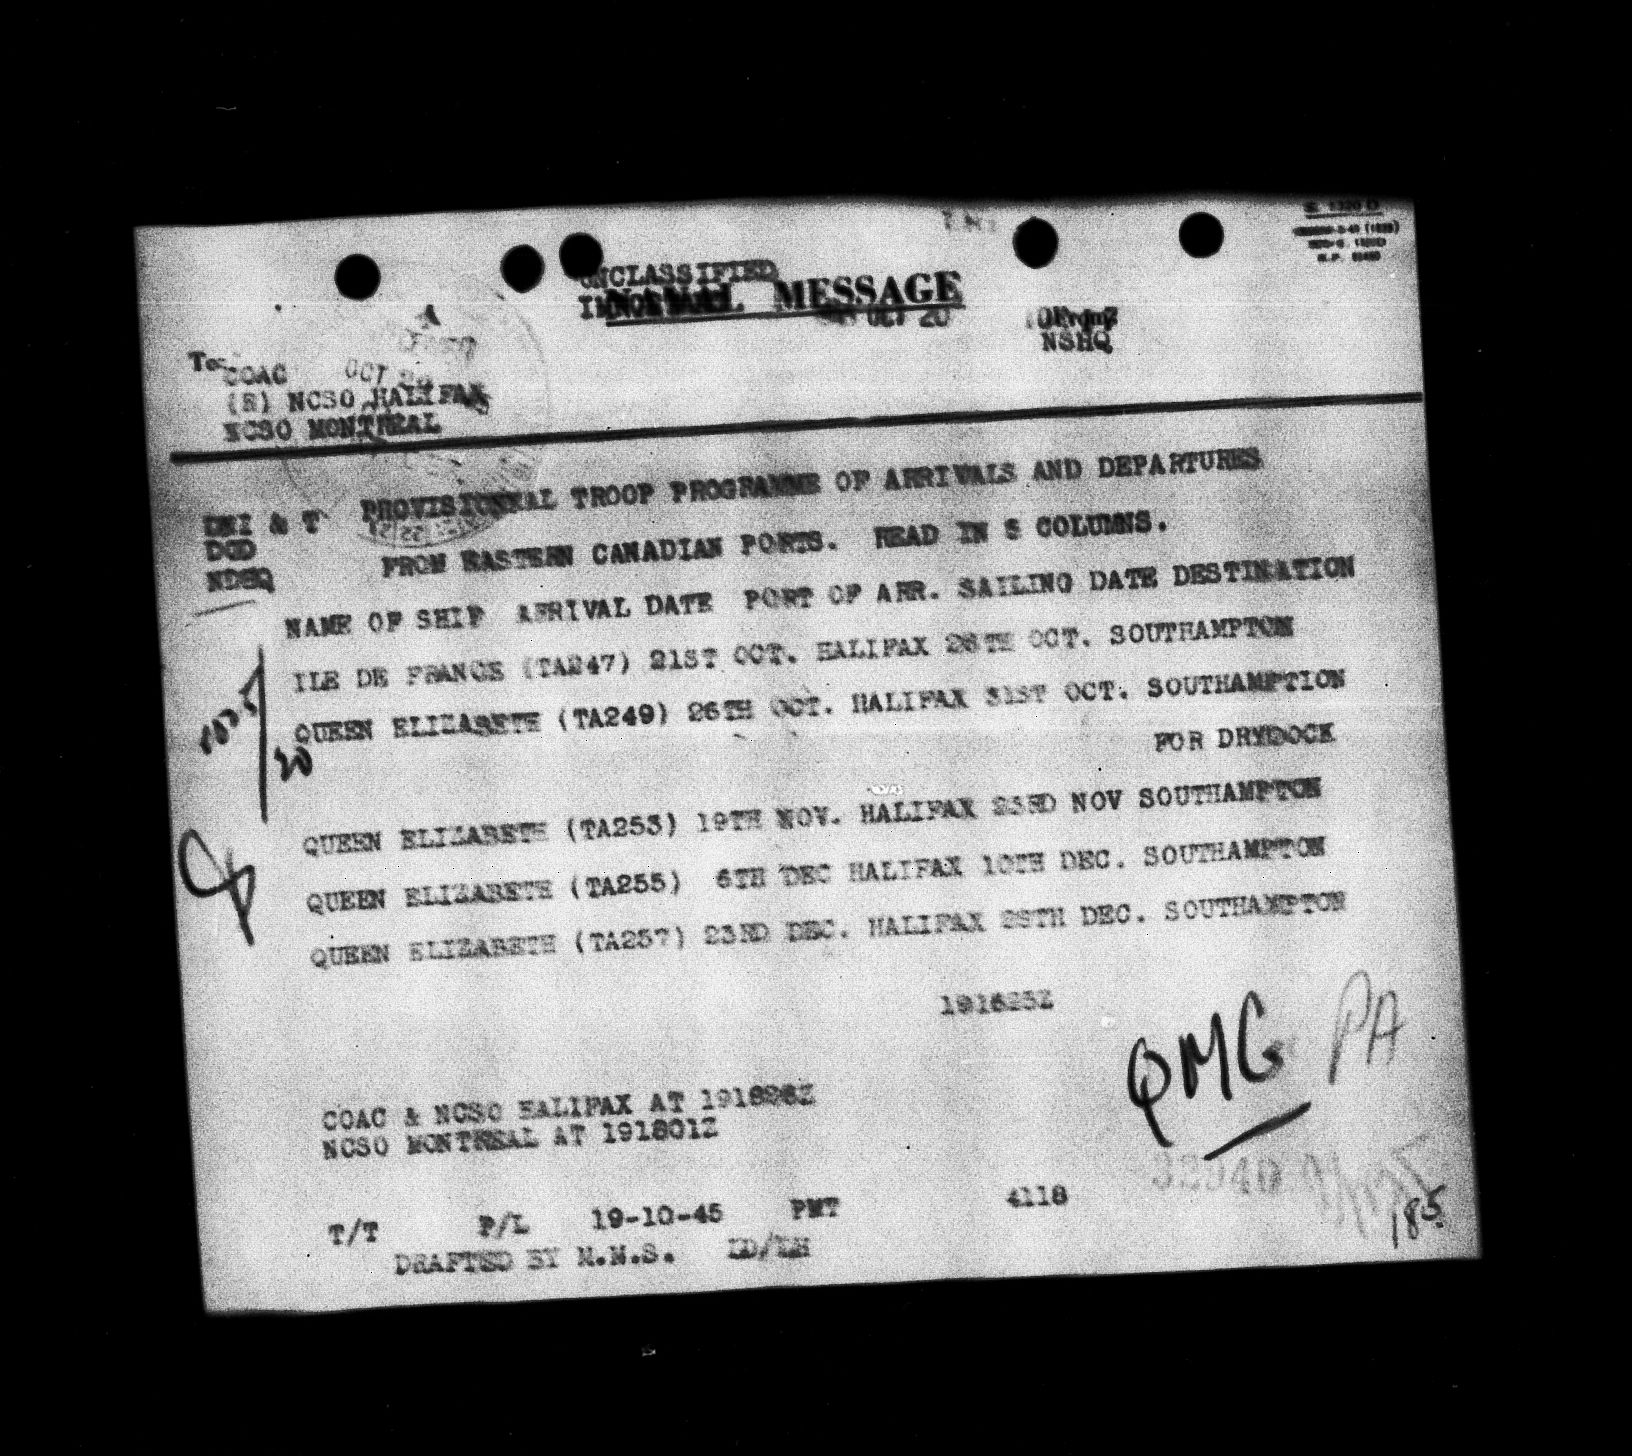 S. 1320 D
UNCLASSIFIED
NAVAL MESSAGE
OCT 20
To:
From:
NSHQ
COAC
OCT
(R) NCSO HALIFAX
NCSO MONTREAL
DMI & T PROVISIONNAL TROOP PROGRAMME OF ARRIVALS AND DEPARTURES
DGD
FROM EASTERN CANADIAN PORTS. READ IN 5 COLUMNS.
NDHQ
NAME OF SHIP ARRIVAL DATE PORT OF ARR. SAILING DATE DESTINATION
ILE DE FRANCE (TA247) 21ST OCT. HALIFAX 26TH OCT. SOUTHAMPTON
QUEEN ELIZABETH (TA249) 26TH OCT. HALIFAX 31ST OCT. SOUTHAMPTION
FOR DRYDOCK
20
QUEEN ELIZABETH (TA253) 19TH NOV. HALIFAX 23RD NOV SOUTHAMPTON
QUEEN ELIZABETH (TA255) 6TH DEC HALIFAX 10TH DEC. SOUTHAMPTON
QUEEN ELIZABETH (TA257) 23RD DEC. HALIFAX 28TH DEC. SOUTHAMPTON
191623Z
QMG PA
COAC & NCSO HALIFAX AT 191828Z
NCSO MONTREAL AT 191801Z
T/T P/L 19-10-45 PMT 4118
185
DRAFTED BY M.M.S.